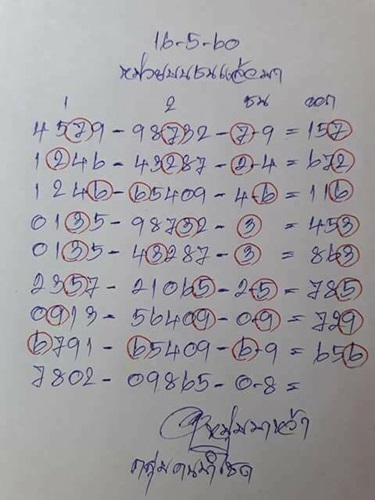 16-5-60
1 2 ชน ออก
4579-98732-7-9=157
1246-43287-2-4=672
1246-65409-4-6=116
0135-98732-3=453
0135-43287-3=863
2357-21065-2-5=785
0913-56409-0-9=729
6791-65409-6-9=656
7802-09865-0-8=